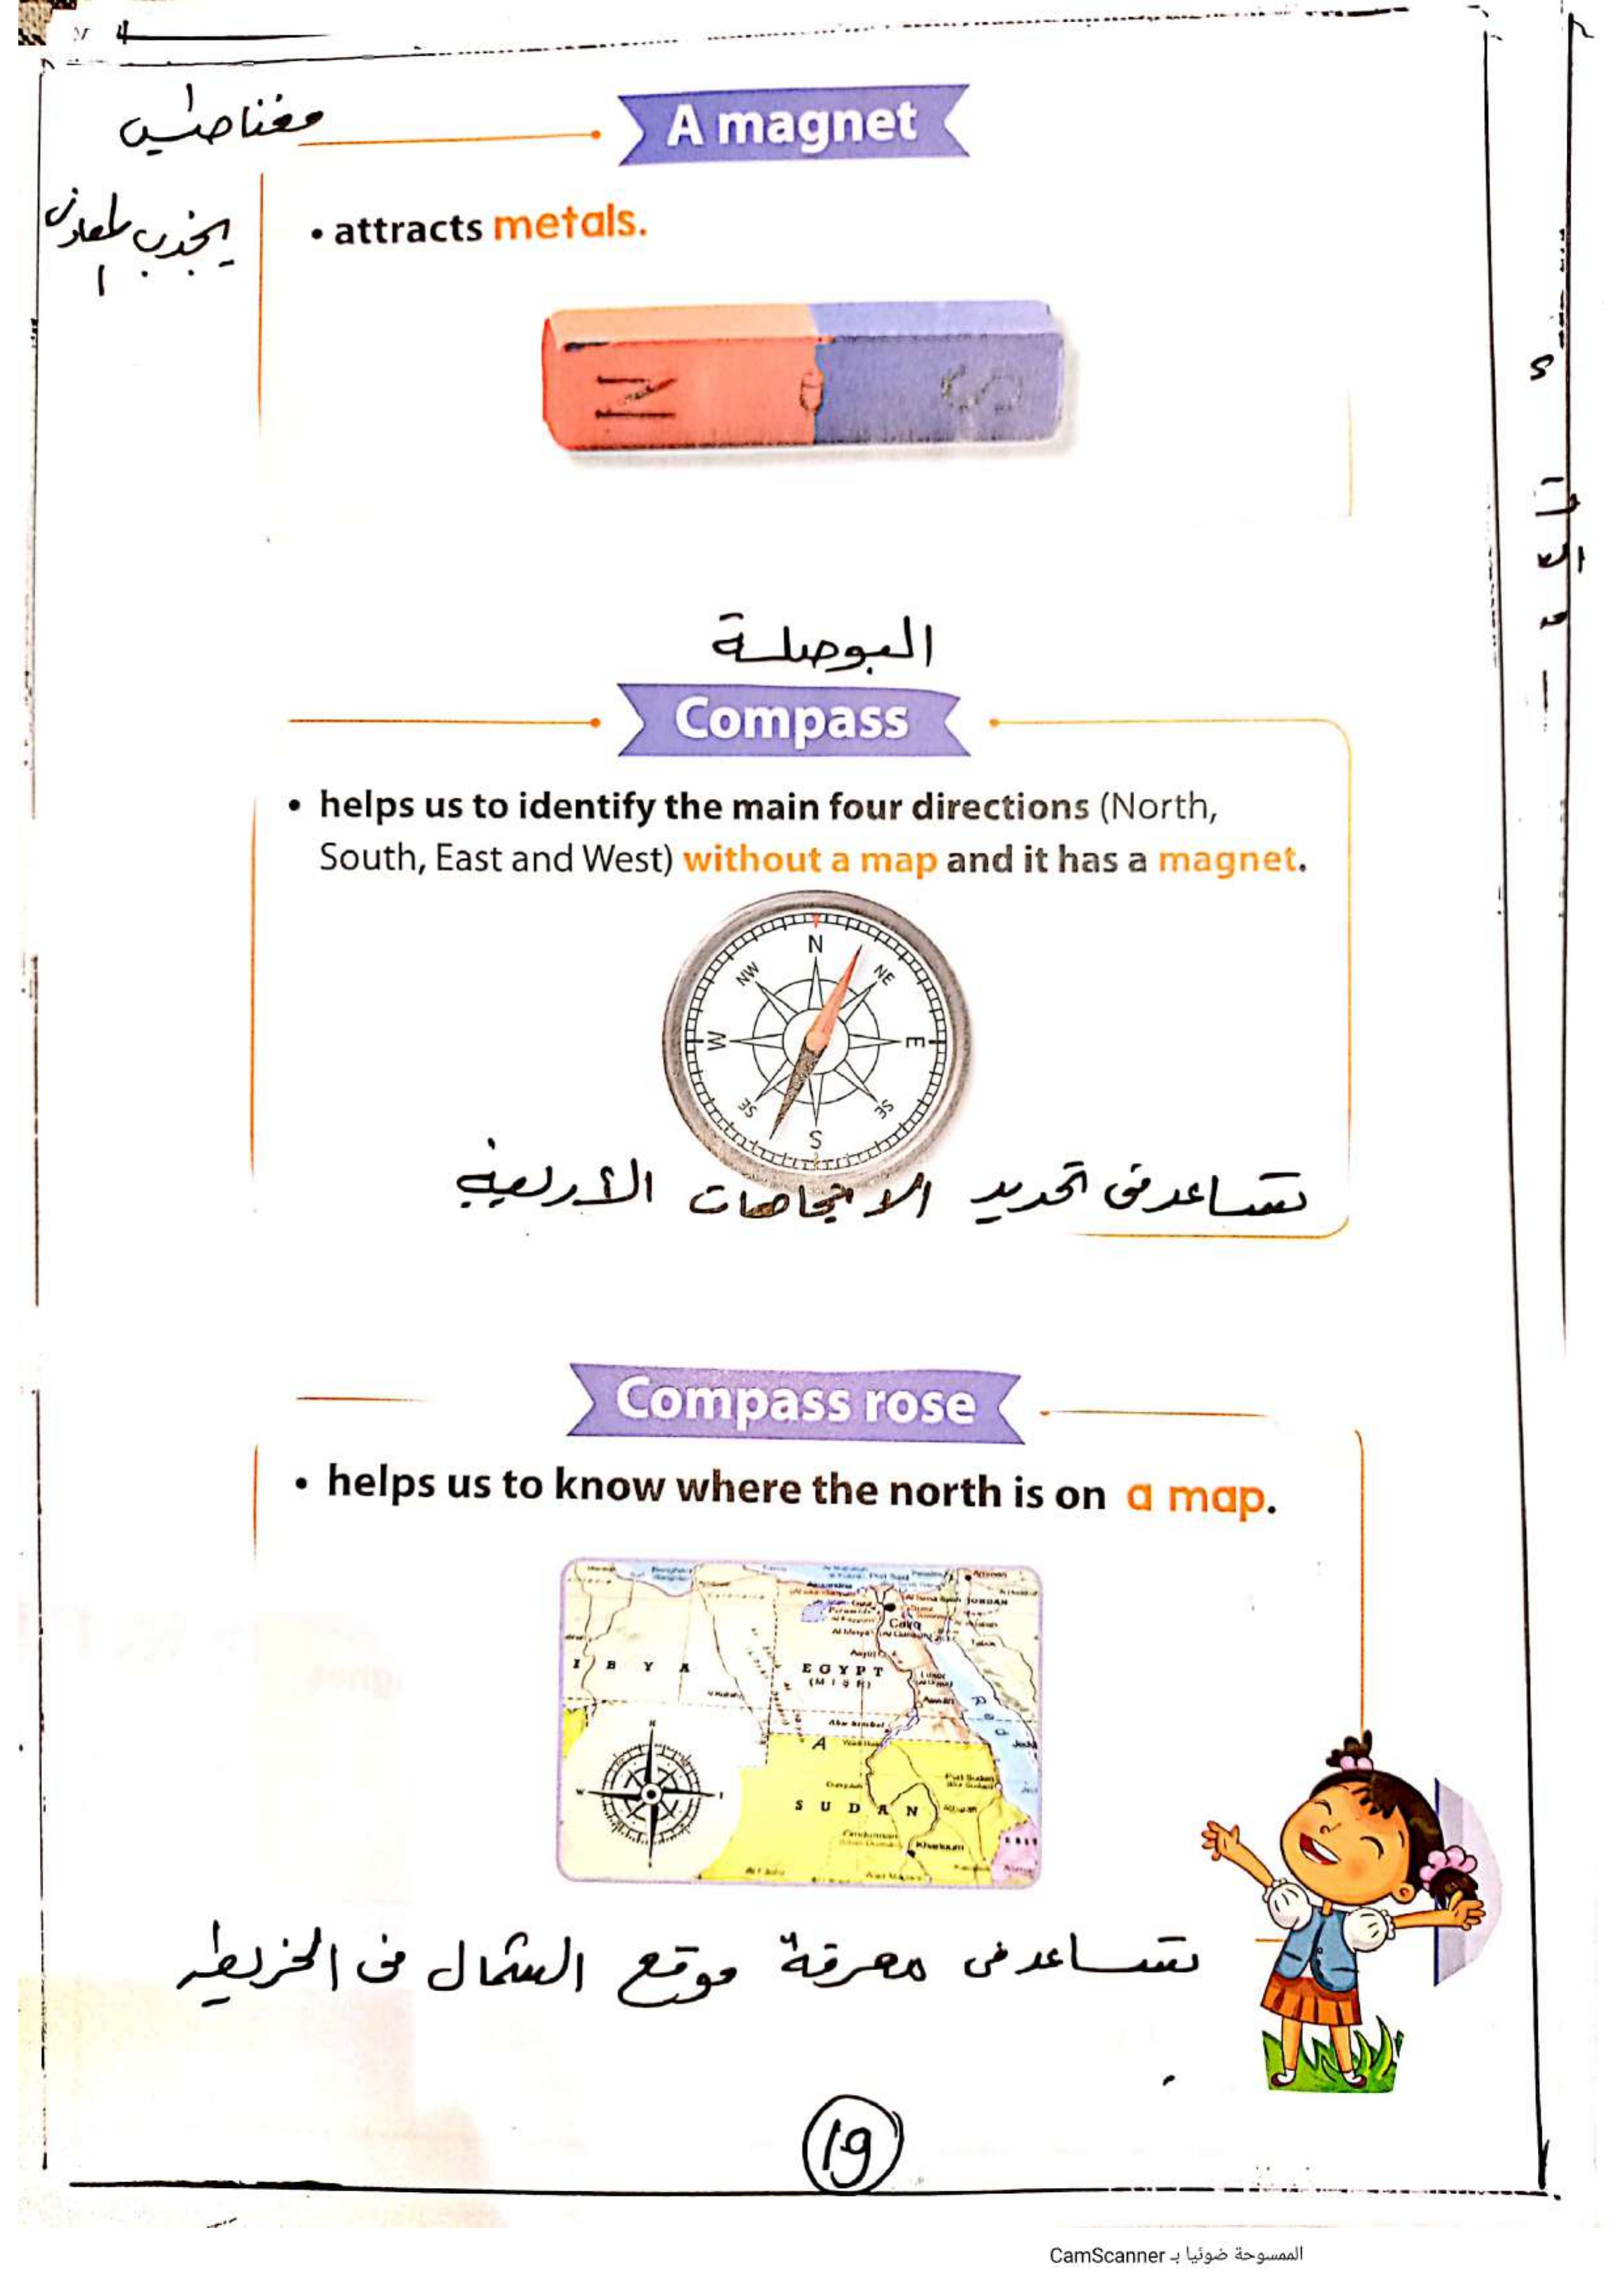 مغناطيس
A magnet
يجذب المعادن
• attracts metals.
N
S
البوصلة
Compass
• helps us to identify the main four directions (North,
South, East and West) without a map and it has a magnet.
N
NW
NE
W
E
SE
SE
S
تساعد فى تحديد الاتجاهات الأربعة
Compass rose
• helps us to know where the north is on a map.
JORDAN
Cairo
I B Y A
EGYPT
(MISR)
Luxor
Abu Simbel
Port Sudan
SUDAN
Khartoum
N
W
تساعد فى معرفة موقع الشمال فى الخريطه
19
الممسوحة ضوئيا بـ CamScanner